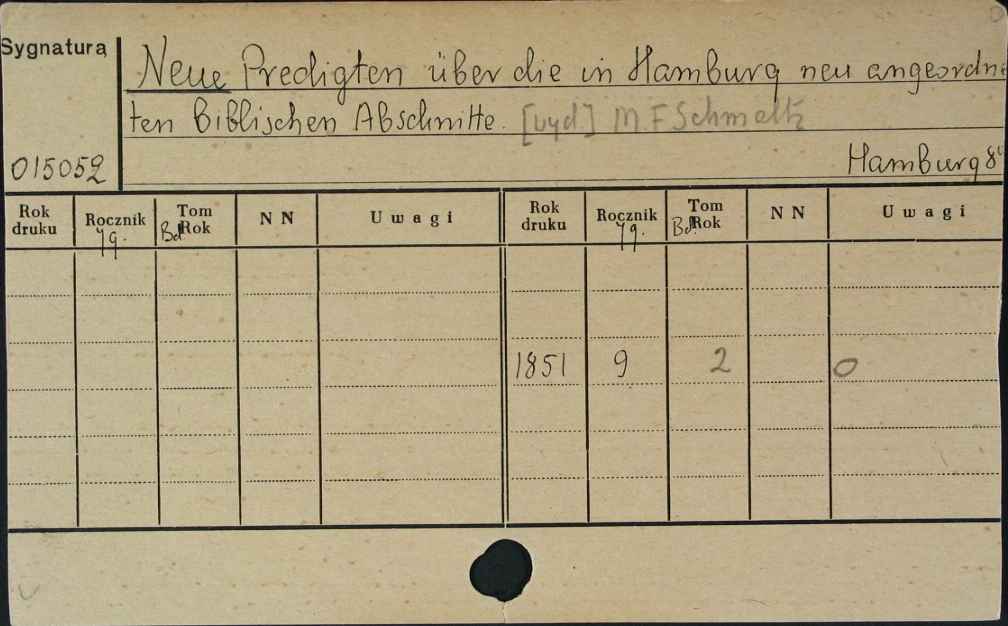 Sygnatura
Neue Predigten über die in Hamburg neu angeordne
ten Biblischen Abschnitte. [wyd.] M. F Schmaltz
015052
Hamburg 8°
Rok druku Rocznik Tom Rok N N Uwagi Rok druku Rocznik Tom Rok N N Uwagi
Jg. Bd. Jg. Bd.
1851 9 2 0